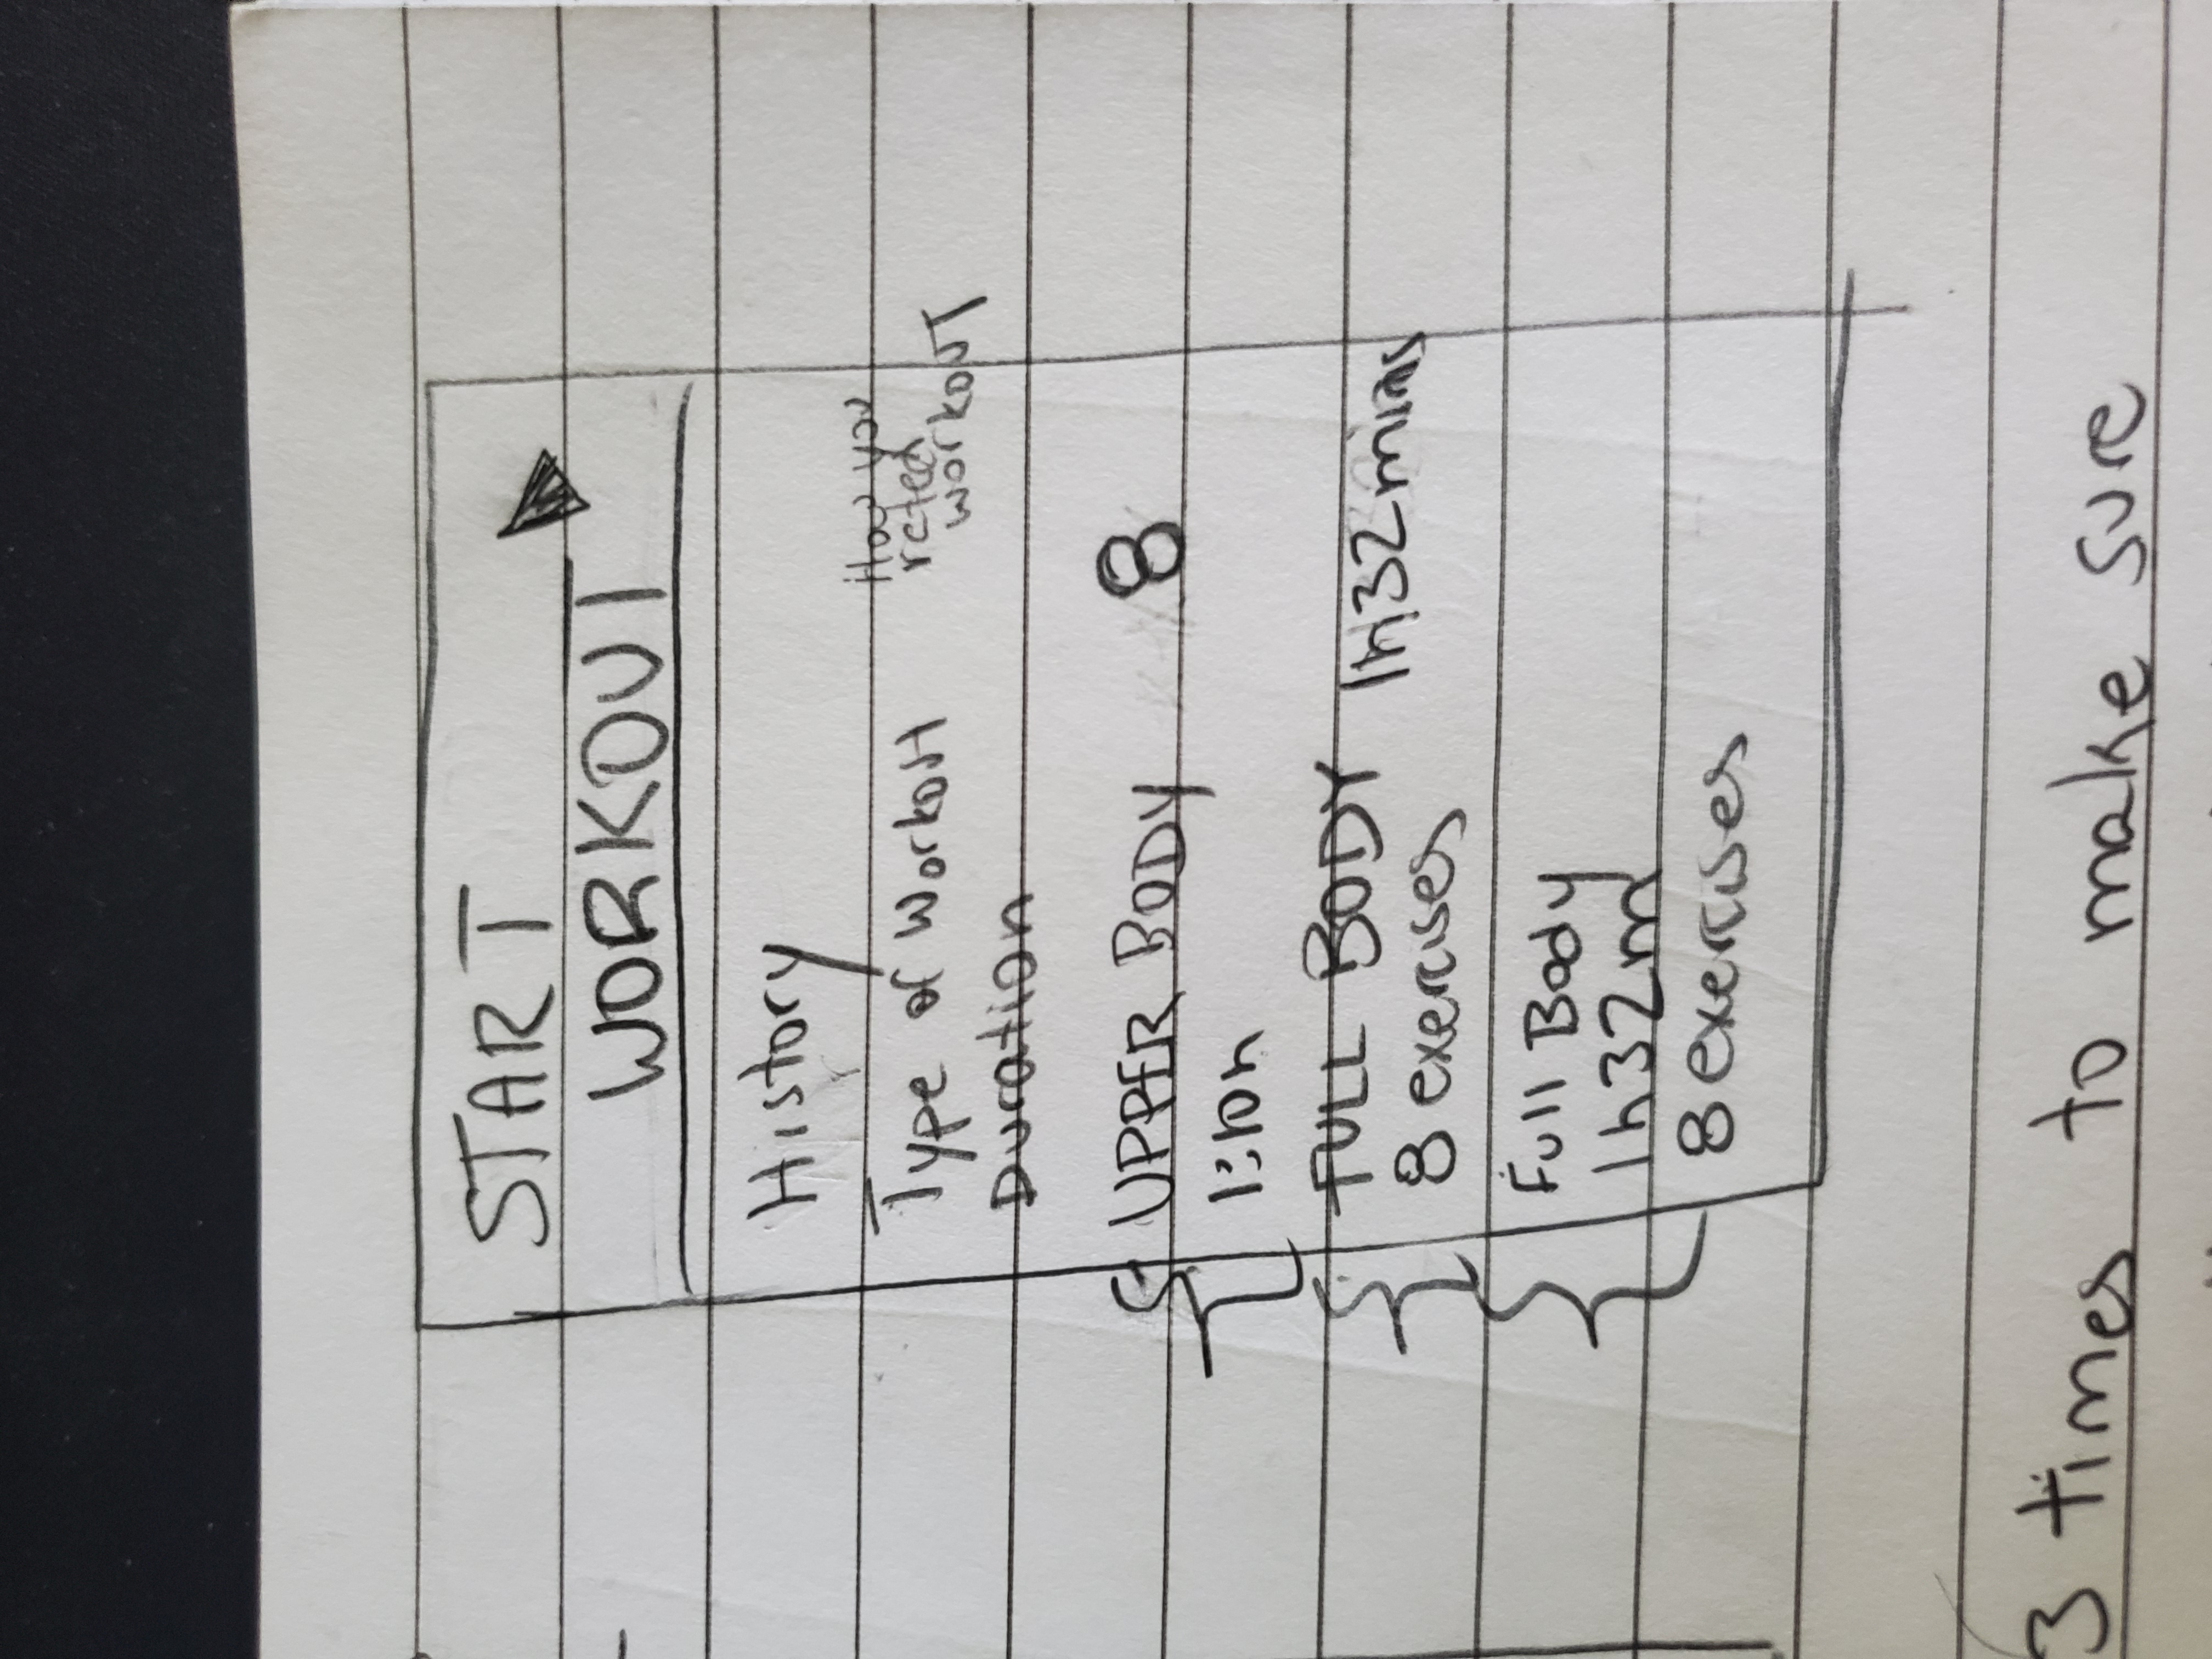 START
WORKOUT
History
Type of Workout
How you
rated
workout
Duration
UPPER BODY 8
1:10h
FULL BODY 1h32mins
8 exercises
Full Body
1h32m
8 exercises
3 times to make sure